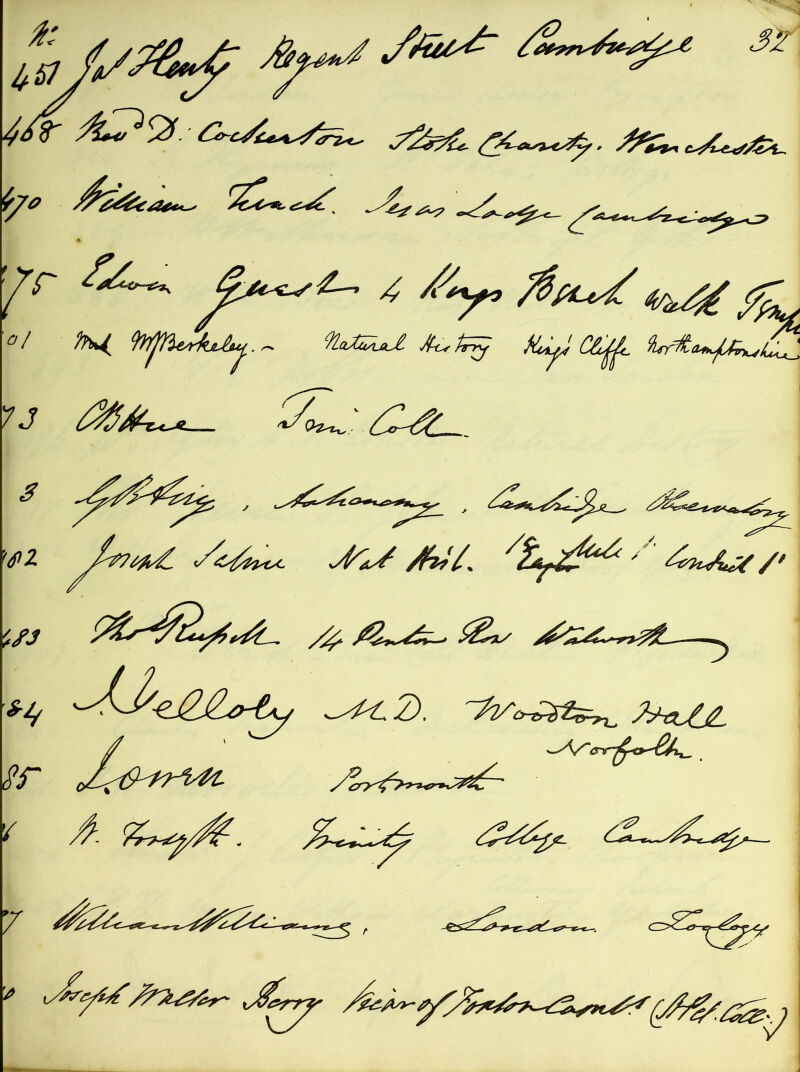 No. 32
451 Jas Henty Regent Street Cambridge
468 Revd D. Cockerton Stoke Charity. Winchester
470 William French. Jesus Lodge Cambridge
75 Edwin Guest 4 Kings Bench walk Temple
01 MJBerkeley. - Natural History King's Cliffe Northamptonshire
73 CBHue Trin: Coll
3 GBAiry, Astronomy, Cambridge Observatory
482 Joseph Sabine Nat Hist. Conduit St
483 Thos Russell 14 Penton Row Walworth
84 J. Yelloly M.D. Woodton Hall
Norfolk.
85 J. Owen Portsmouth
6 W. Forsyth. Trinity College Cambridge
7 William Williams. London. Zoology
0 Joseph Walter Berry Vicar of Foxton Cambs (St Pet. Coll:)